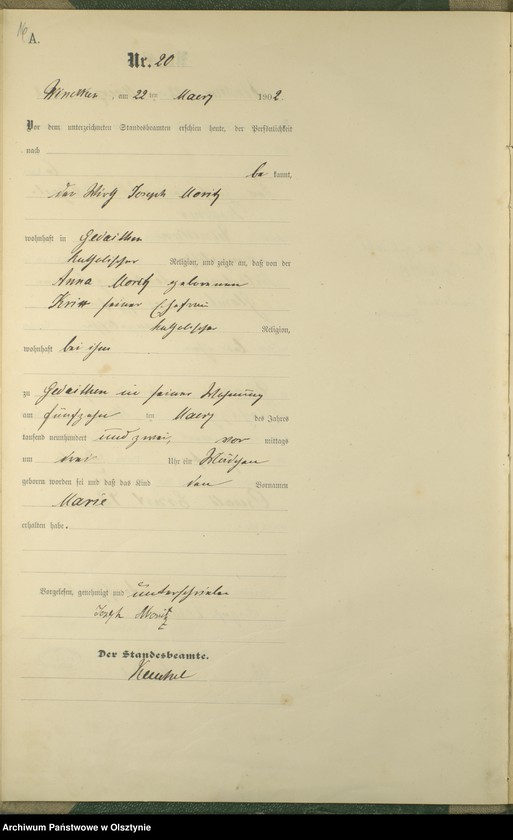 A.
Nr. 20
am 22 ten Maerz 1902
Vor dem unterzeichneten Standesbeamten erschien heute, der Persönlichkeit
nach
be kannt,
der Wirth Joseph Moritz
wohnhaft in Gedaithen
katholischer Religion, und zeigte an, daß von der
Anna Moritz geborenen
seiner Ehefrau
katholischer Religion,
wohnhaft bei ihm
zu Gedaithen in seiner Wohnung
am fünfzehn ten Maerz des Jahres
tausend neunhundert und zwei, vor mittags
um drei Uhr ein Mädchen
geboren worden sei und daß das Kind den Vornamen
Marie
erhalten habe.
Vorgelesen, genehmigt und unterschrieben
Joseph Moritz
Der Standesbeamte.
Archiwum Państwowe w Olsztynie